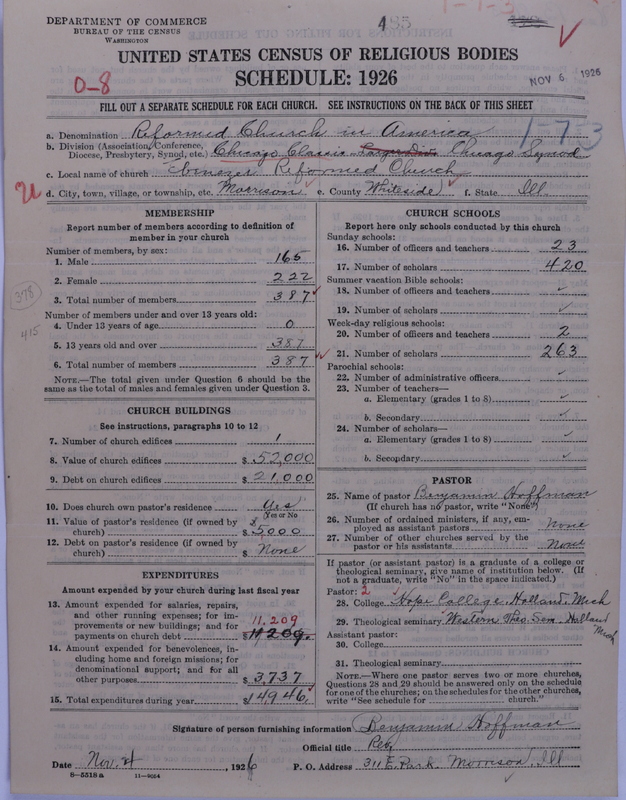 DEPARTMENT OF COMMERCE
BUREAU OF THE CENSUS
WASHINGTON
485
1-1-3
UNITED STATES CENSUS OF RELIGIOUS BODIES
SCHEDULE: 1926
0-8
NOV 6 1926
FILL OUT A SEPARATE SCHEDULE FOR EACH CHURCH. SEE INSTRUCTIONS ON THE BACK OF THIS SHEET
1-7-3
a. Denomination Reformed Church in America
b. Division (Association, Conference, Diocese, Presbytery, Synod, etc.) Chicago Classis Chicago Synod
c. Local name of church Ebenezer Reformed Church
d. City, town, village, or township, etc. Morrison e. County Whiteside f. State Ill.
MEMBERSHIP
Report number of members according to definition of
member in your church
Number of members, by sex:
1. Male 165
2. Female 222
3. Total number of members 387
378
Number of members under and over 13 years old:
4. Under 13 years of age 0
415
5. 13 years old and over 387
6. Total number of members 387
NOTE.—The total given under Question 6 should be
same as the total of males and females given under Question 3.
CHURCH BUILDINGS
See instructions, paragraphs 10 to 12
7. Number of church edifices 1
8. Value of church edifices $ 52,000
9. Debt on church edifices $ 21,000
10. Does church own pastor's residence? Yes
(Yes or No)
11. Value of pastor's residence (if owned by
church) $ 5000
12. Debt on pastor's residence (if owned by
church) $ None
EXPENDITURES
Amount expended by your church during last fiscal year
13. Amount expended for salaries, repairs,
and other running expenses; for im-
provements or new buildings; and for
payments on church debt $ 11,209.
11,209
14. Amount expended for benevolences, in-
cluding home and foreign missions; for
denominational support; and for all
other purposes $ 3,737
15. Total expenditures during year $ 14946.
CHURCH SCHOOLS
Report here only schools conducted by this church
Sunday schools:
16. Number of officers and teachers 23
17. Number of scholars 420
Summer vacation Bible schools:
18. Number of officers and teachers
19. Number of scholars
Week-day religious schools:
20. Number of officers and teachers 2
21. Number of scholars 263
Parochial schools:
22. Number of administrative officers
23. Number of teachers—
a. Elementary (grades 1 to 8)
b. Secondary
24. Number of scholars—
a. Elementary (grades 1 to 8)
b. Secondary
PASTOR
25. Name of pastor Benjamin Hoffman
(If church has no pastor, write "None")
26. Number of ordained ministers, if any, em-
ployed as assistant pastors None
27. Number of other churches served by the
pastor or his assistants None
If pastor (or assistant pastor) is a graduate of a college or
theological seminary, give name of institution below. (If
not a graduate, write "No" in the space indicated.)
Pastor: 2
28. College Hope College, Holland, Mich
29. Theological seminary Western Theo. Sem. Holland Mich
Assistant pastor:
30. College
31. Theological seminary
NOTE.—Where one pastor serves two or more churches,
Questions 28 and 29 should be answered only on the schedule
for one of the churches; on the schedules for the other churches,
write "See schedule for church."
Signature of person furnishing information Benjamin Hoffman
Official title Rev.
Date Nov. 4, 1926 P. O. Address 311 E. Park Morrison, Ill
8—5518 a 11—9064